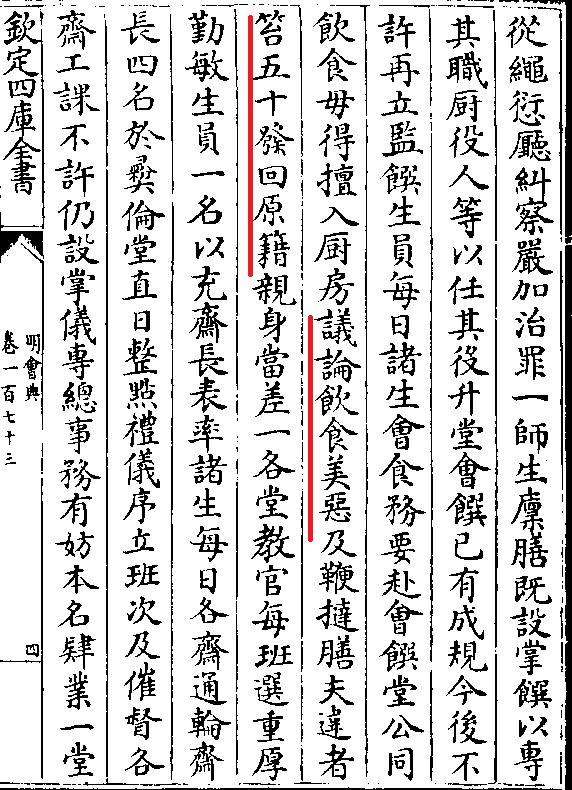 從繩愆廳糾察嚴加治罪一師生廪膳既設掌饌以專
其職厨役人等以任其役升堂會饌已有成規今後不
許再立監饌生員每日諸生會食務要赴會饌堂公同
飲食毋得擅入厨房議論飲食美惡及鞭撻膳夫違者
笞五十發回原籍親身當差一各堂教官每班選重厚
勤敏生員一名以充齋長表率諸生每日各齋通輪齋
長四名於彛倫堂直日整㸃禮儀序立班次及催督各
齋工課不許仍設掌儀專總事務有妨本名肄業一堂
欽定四庫全書
明會典
卷一百七十三
四